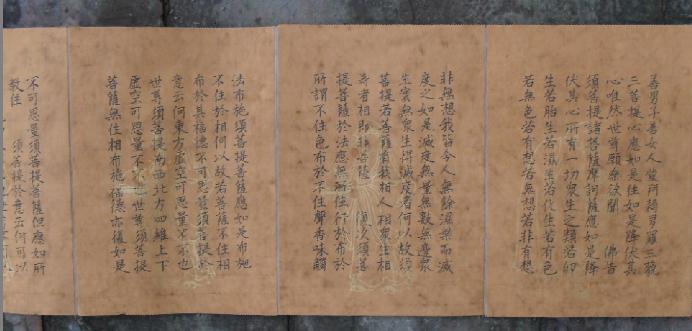 善男子善女人發阿耨多羅三藐
三菩提心應如是住如是降伏其
心唯然世尊願樂欲聞　佛告
須菩提諸菩薩摩訶薩應如是降
伏其心所有一切衆生之類若卵
生若胎生若濕生若化生若有色
若無色若有想若無想若非有想
非無想我皆令入無餘涅槃而滅
度之如是滅度無量無數無邊衆
生實無衆生得滅度者何以故須
菩提若菩薩有我相人相衆生相
壽者相即非菩薩　復次須菩
提菩薩於法應無所住行於布施
所謂不住色布施不住聲香味觸
法布施須菩提菩薩應如是布施
不住於相何以故若菩薩不住相
布施其福德不可思量須菩提於
意云何東方虛空可思量不不也
世尊須菩提南西北方四維上下
虛空可思量不不也世尊須菩提
菩薩無住相布施福德亦復如是
不可思量須菩提菩薩但應如所
教住　須菩提於意云何可以